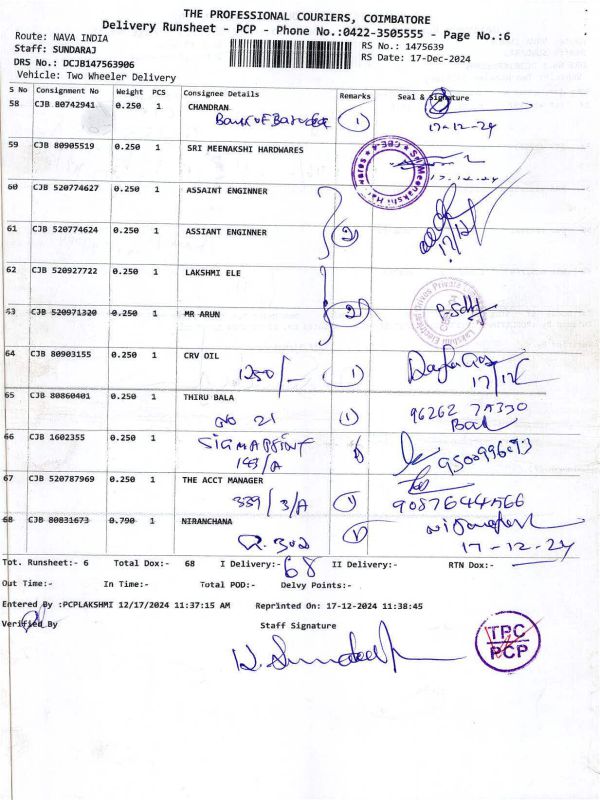 THE PROFESSIONAL COURIERS, COIMBATORE
Delivery Runsheet - PCP - Phone No.:0422-3505555 - Page No.:6
Route: NAVA INDIA
RS No.: 1475639
Staff: SUNDARAJ
RS Date: 17-Dec-2024
DRS No.: DCJB147563906
Vehicle: Two Wheeler Delivery
S No Consignment No Weight PCS Consignee Details Remarks Seal & Signature
58 CJB 80742941 0.250 1 CHANDRAN
Bank of Baroda 1
17-12-24
59 CJB 80905519 0.250 1 SRI MEENAKSHI HARDWARES
Sri Meenakshi Hardwares CBE-4
17-12-24
60 CJB 520774627 0.250 1 ASSAINT ENGINNER
61 CJB 520774624 0.250 1 ASSIANT ENGINNER 2
17/12/
62 CJB 520927722 0.250 1 LAKSHMI ELE
Lakshmi Electrical Drives Private
63 CJB 520971320 0.250 1 MR ARUN 2
64 CJB 80903155 0.250 1 CRV OIL
1250/- 1
17/12
65 CJB 80860401 0.250 1 THIRU BALA
NO 21 1
66 CJB 1602355 0.250 1 SIGMAPRINT
143/A
67 CJB 520787969 0.250 1 THE ACCT MANAGER
339/3/A 1 9087644566
68 CJB 80831673 0.790 1 NIRANCHANA
302 1
17-12-24
Tot. Runsheet:- 6 Total Dox:- 68 I Delivery:- 68 II Delivery:- RTN Dox:-
Out Time:- In Time:- Total POD:- Delvy Points:-
Entered By :PCPLAKSHMI 12/17/2024 11:37:15 AM Reprinted On: 17-12-2024 11:38:45
Verified By Staff Signature
TPC
PCP